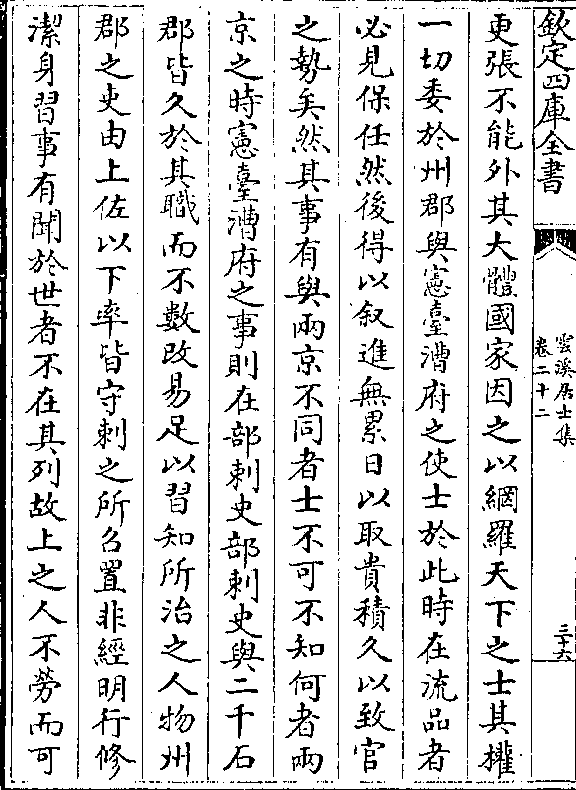 欽定四庫全書
雲溪居士集
卷二十二
三十六
更張不能外其大體國家因之以網羅天下之士其權
一切委於州郡與憲臺漕府之使士於此時在流品者
必見保任然後得以叙進無累日以取貴積久以致官
之勢矣然其事有與兩京不同者士不可不知何者兩
京之時憲臺漕府之事則在部刺史部刺史與二千石
郡皆久於其職而不數改易足以習知所治之人物州
郡之吏由上佐以下率皆守刺之所召置非經明行修
潔身習事有聞於世者不在其列故上之人不勞而可